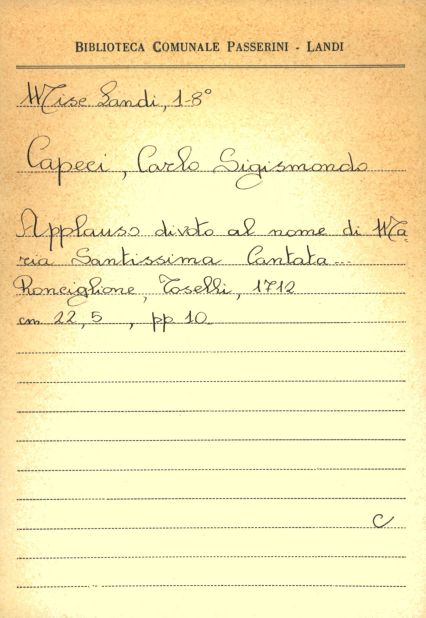 BIBLIOTECA COMUNALE PASSERINI - LANDI
Misc Landi, 1-8°
Capeci, Carlo Sigismondo
Applauso divoto al nome di Ma
ria Santissima Cantata ...
Ronciglione, Toselli, 1712
cm 22,5 , pp 10
C